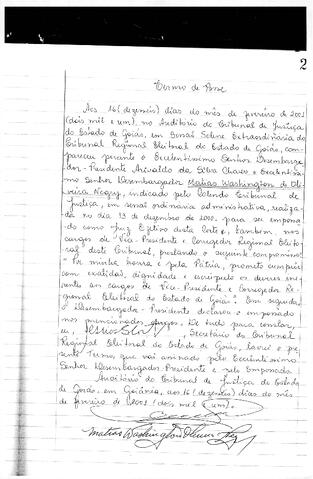 2
Termo de Posse
Aos 16 (dezesseis) dias do mês de fevereiro de 2001
(dois mil e um), no Auditório do Tribunal de Justiça
do Estado de Goiás, em Sessão Solene Extraordinária do
Tribunal Regional Eleitoral do Estado de Goiás, com-
pareceu perante o Excelentíssimo Senhor Desembarga-
dor-Presidente Arivaldo da Silva Chaves o Excelentíssi-
mo Senhor Desembargador Matias Washington de Oli-
veira Negry, indicado pelo Colendo Tribunal de
Justiça, em sessão ordinária administrativa, realiza-
da no dia 13 de dezembro de 2000, para ser empossa-
do como Juiz Efetivo desta Corte e, também, nos
cargos de Vice-Presidente e Corregedor Regional Eleito-
ral deste Tribunal, prestando o seguinte compromisso:
"Por minha honra e pela Pátria, prometo cumprir
com exatidão, dignidade e escrúpulo os deveres ine-
rentes aos cargos de Vice-Presidente e Corregedor Re-
gional Eleitoral do Estado de Goiás". Em seguida,
o Desembargador-Presidente declarou-o empossado
nos mencionados cargos. E, tudo para constar,
eu, Secretário do Tribunal
Regional Eleitoral do Estado de Goiás, lavrei o pre-
sente Termo, que vai assinado pelo Excelentíssimo
Senhor Desembargador-Presidente e pelo Empossado.
Auditório do Tribunal de Justiça do Estado
de Goiás, em Goiânia, aos 16 (dezesseis) dias do mês
de fevereiro de 2001 (dois mil e um).
Matias Washington Oliveira Negry